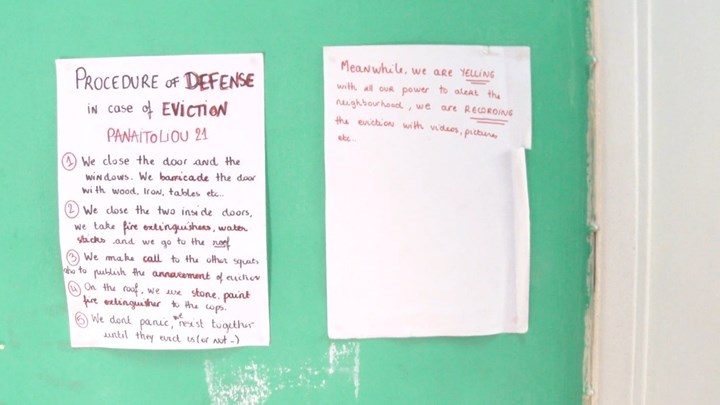 PROCEDURE OF DEFENSE
in case of EVICTION
PANAITOLIOU 21
① We close the door and the
windows. We barricade the door
with wood, Iron, tables etc..
② We close the two inside doors,
we take fire extinguishers, water
sticks and we go to the roof
③ We make call to the other squats
also to publish the annoucement of eviction
④ On the roof, we use stone, paint
fire extinguisher to the cops.
⑤ We dont panic, we resist together
until they evict us (or not..)
Meanwhile, we are YELLING
with all our power to alert the
neighbourhood, we are RECORDING
the eviction with videos, picture,
etc..